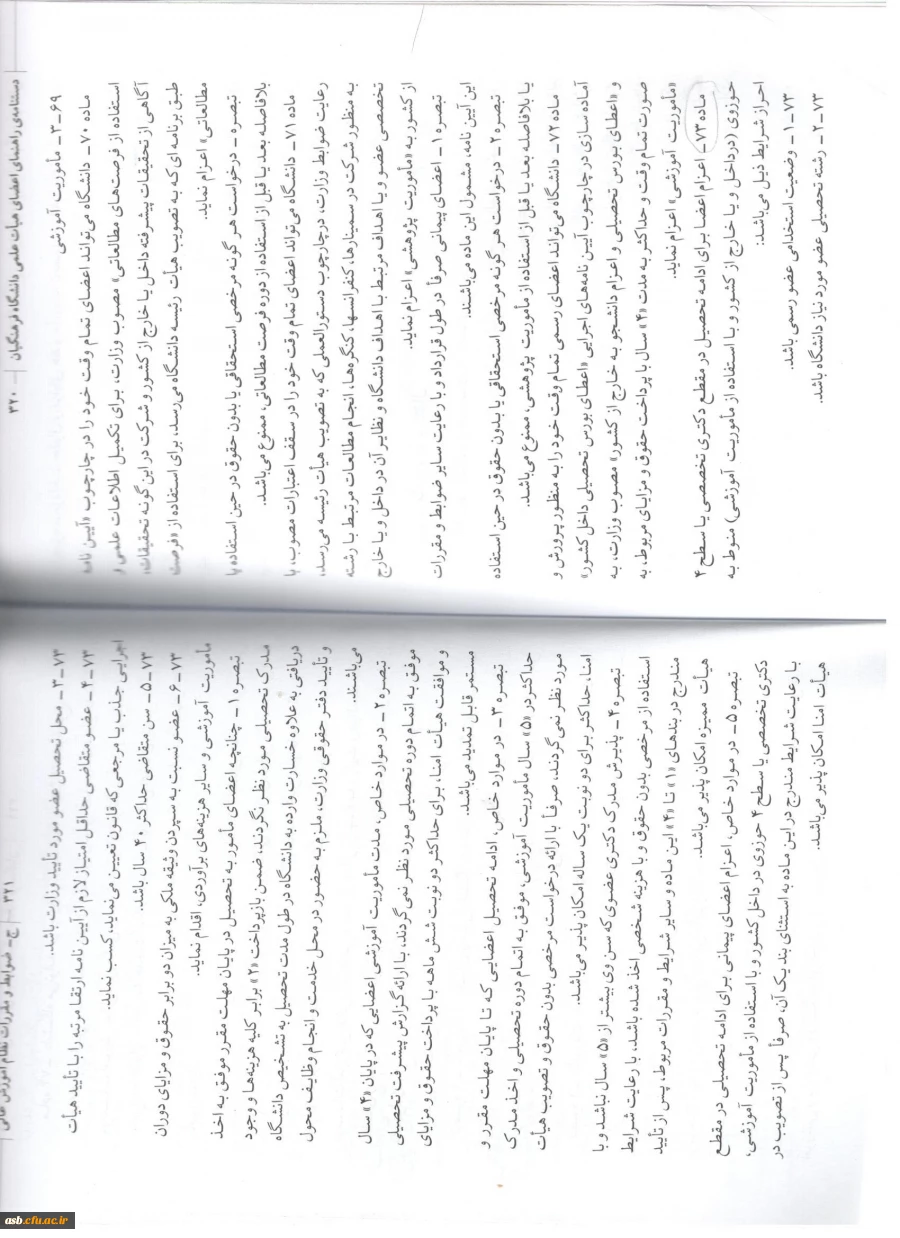 دستنامه‌ی راهنمای اعضای هیأت علمی دانشگاه فرهنگیان
۳۲۰
۶۹ـ ۳ـ مأموریت آموزشی
ماده ۷۰ـ دانشگاه می‌تواند اعضای تمام وقت خود را در چارچوب «آیین نامه
استفاده از فرصت‌های مطالعاتی» مصوب وزارت، برای تکمیل اطلاعات علمی و
آگاهی از تحقیقات پیشرفته داخل یا خارج از کشور و شرکت در این گونه تحقیقات،
طبق برنامه ای که به تصویب هیأت رئیسه دانشگاه می‌رسد، برای استفاده از «فرصت
مطالعاتی» اعزام نماید.
تبصره ـ درخواست هر گونه مرخصی استحقاقی یا بدون حقوق در حین استفاده یا
بلافاصله بعد یا قبل از استفاده از دوره فرصت مطالعاتی، ممنوع می‌باشد.
ماده ۷۱ـ دانشگاه می‌تواند اعضای تمام وقت خود را در سقف اعتبارات مصوب، با
رعایت ضوابط وزارت، در چارچوب دستورالعملی که به تصویب هیأت رئیسه می‌رسد،
به منظور شرکت در سمینارها، کنفرانسها، کنگره‌ها، انجام مطالعات مرتبط با رشته
تخصصی عضو و یا اهداف مرتبط با اهداف دانشگاه و نظایر آن در داخل و یا خارج
از کشور به «مأموریت پژوهشی» اعزام نماید.
تبصره ۱ـ اعضای پیمانی صرفاً در طول قرارداد و با رعایت سایر ضوابط و مقررات
این آیین نامه، مشمول این ماده می‌باشند.
تبصره ۲ـ درخواست هر گونه مرخصی استحقاقی یا بدون حقوق در حین استفاده
یا بلافاصله بعد یا قبل از استفاده از مأموریت پژوهشی، ممنوع می‌باشد.
ماده ۷۲ـ دانشگاه می‌تواند اعضای رسمی تمام وقت خود را به منظور پرورش و
آماده سازی در چارچوب آیین نامه‌های اجرایی «اعطای بورس تحصیلی داخل کشور»
و «اعطای بورس تحصیلی و اعزام دانشجو به خارج از کشور» مصوب وزارت، به
صورت تمام وقت و حداکثر به مدت «۴» سال با پرداخت حقوق و مزایای مربوط، به
«مأموریت آموزشی» اعزام نماید.
ماده ۷۳ـ اعزام اعضا برای ادامه تحصیل در مقطع دکتری تخصصی یا سطح ۴
حوزوی (در داخل و یا خارج از کشور و با استفاده از مأموریت آموزشی) منوط به
احراز شرایط ذیل می‌باشد:
۷۳ـ ۱ـ وضعیت استخدامی عضو رسمی باشد.
۷۳ـ ۲ـ رشته تحصیلی عضو مورد نیاز دانشگاه باشد.
ج ـ ضوابط و مقررات نظام آموزش عالی
۳۲۱
۷۳ـ ۳ـ محل تحصیل عضو مورد تأیید وزارت باشد.
۷۳ـ ۴ـ عضو متقاضی حداقل امتیاز لازم از آیین نامه ارتقا مرتبه را با تایید هیأت
اجرایی جذب یا مرجعی که قانون تعیین می‌نماید، کسب نماید.
۷۳ـ ۵ـ سن متقاضی حداکثر ۴۰ سال باشد.
۷۳ـ ۶ـ عضو نسبت به سپردن وثیقه ملکی به میزان دو برابر حقوق و مزایای دوران
مأموریت آموزشی و سایر هزینه‌های برآوردی، اقدام نماید.
تبصره ۱ـ چنانچه اعضای مأمور به تحصیل در پایان مهلت مقرر موفق به اخذ
مدرک تحصیلی مورد نظر نگردند، ضمن بازپرداخت «۲» برابر کلیه هزینه‌ها و وجوه
دریافتی به علاوه خسارت وارده به دانشگاه در طول مدت تحصیل به تشخیص دانشگاه
و تأیید دفتر حقوقی وزارت، ملزم به حضور در محل خدمت و انجام وظایف محول
می‌باشند.
تبصره ۲ـ در موارد خاص، مدت مأموریت آموزشی اعضایی که در پایان «۴» سال
موفق به اتمام دوره تحصیلی مورد نظر نمی گردند، با ارائه گزارش پیشرفت تحصیلی
و موافقت هیأت امنا، برای حداکثر دو نوبت شش ماهه با پرداخت حقوق و مزایای
مستمر قابل تمدید می‌باشد.
تبصره ۳ـ در موارد خاص، ادامه تحصیل اعضایی که تا پایان مهلت مقرر و
حداکثر در «۵» سال مأموریت آموزشی، موفق به اتمام دوره تحصیلی و اخذ مدرک
مورد نظر نمی گردند، صرفاً با ارائه درخواست مرخصی بدون حقوق و تصویب هیأت
امنا، حداکثر برای دو نوبت یک ساله امکان پذیر می‌باشد.
تبصره ۴ـ پذیرش مدرک دکتری عضوی که سن وی بیشتر از «۵» سال نباشد و با
استفاده از مرخصی بدون حقوق و با هزینه شخصی اخذ شده باشد، با رعایت شرایط
مندرج در بندهای «۱» تا «۴» این ماده و سایر شرایط و مقررات مربوط، پس از تأیید
هیأت ممیزه امکان پذیر می‌باشد.
تبصره ۵ـ در موارد خاص، اعزام اعضای پیمانی برای ادامه تحصیلی در مقطع
دکتری تخصصی یا سطح ۴ حوزوی در داخل کشور و با استفاده از مأموریت آموزشی،
با رعایت شرایط مندرج در این ماده به استثنای بند یک آن، صرفاً پس از تصویب در
هیأت امنا امکان پذیر می‌باشد.
asb.cfu.ac.ir